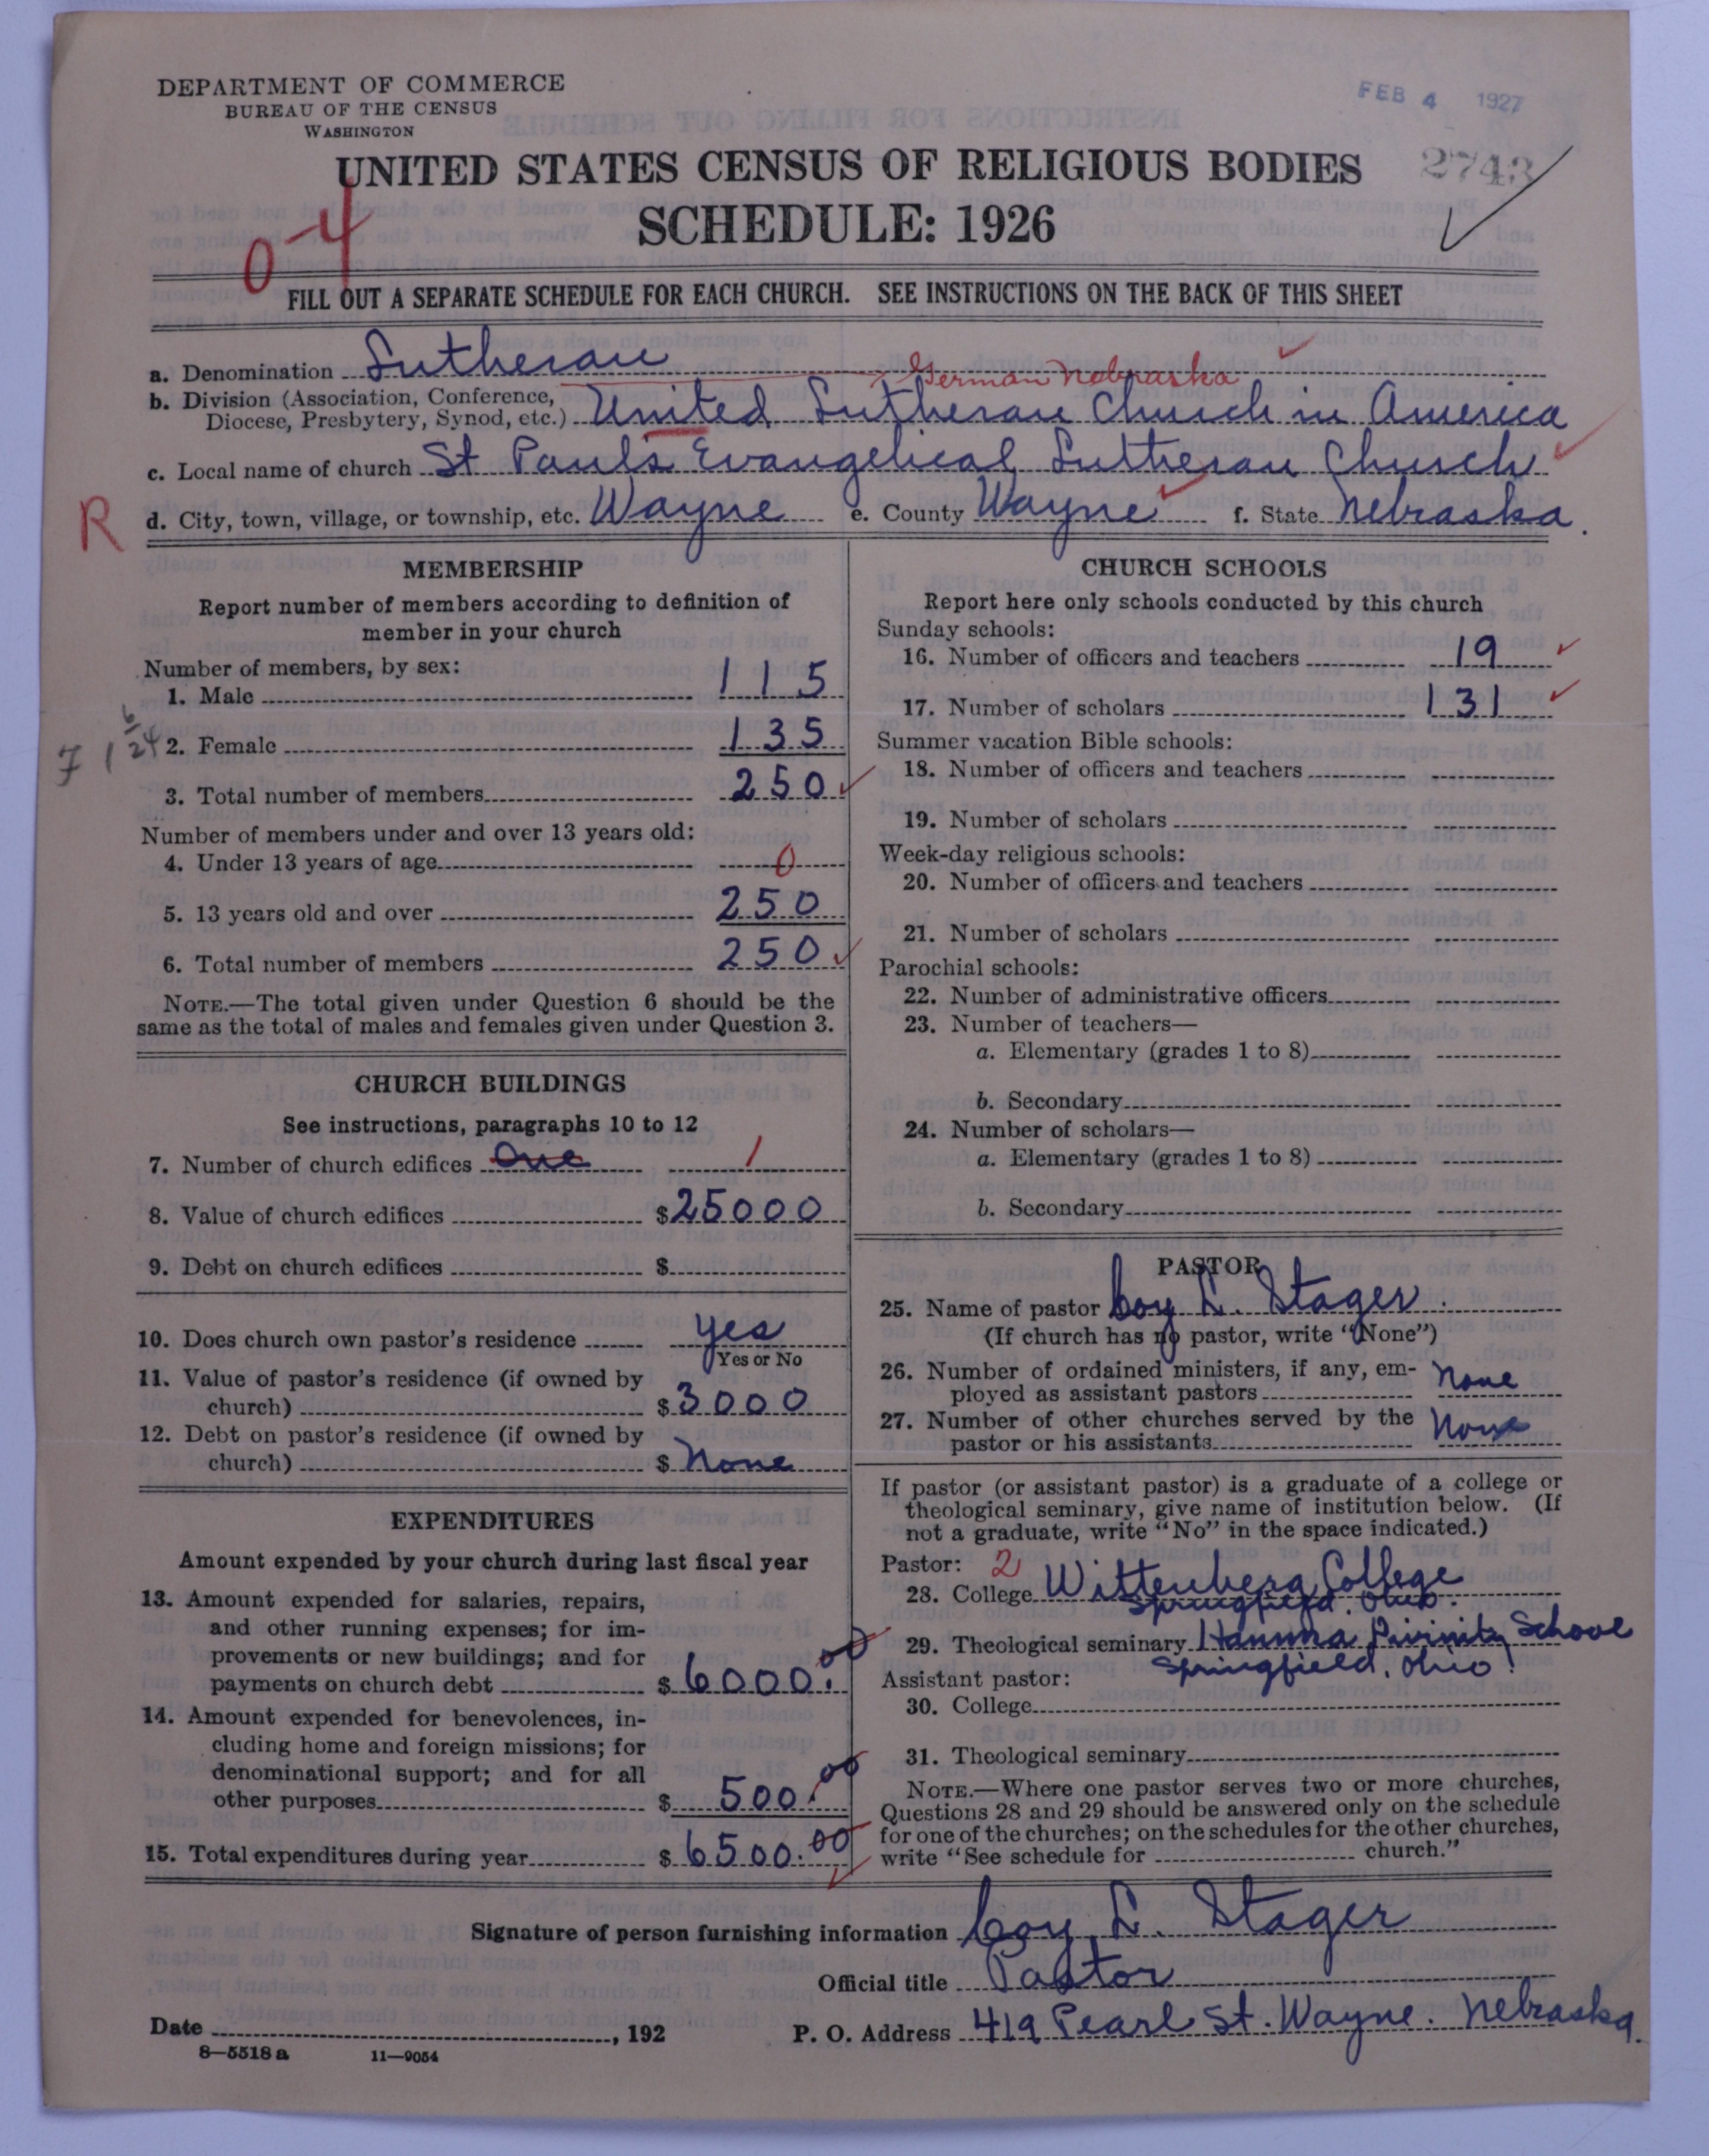 DEPARTMENT OF COMMERCE
BUREAU OF THE CENSUS
WASHINGTON
FEB 4 1927
2743
UNITED STATES CENSUS OF RELIGIOUS BODIES
SCHEDULE: 1926
0-4
FILL OUT A SEPARATE SCHEDULE FOR EACH CHURCH. SEE INSTRUCTIONS ON THE BACK OF THIS SHEET
a. Denomination Lutheran German Nebraska
b. Division (Association, Conference, Diocese, Presbytery, Synod, etc.) United Lutheran Church in America
c. Local name of church St Paul's Evangelical Lutheran Church
R d. City, town, village, or township, etc. Wayne e. County Wayne f. State Nebraska.
MEMBERSHIP
Report number of members according to definition of
member in your church
Number of members, by sex:
1. Male 115
2. Female 135
3. Total number of members 250
Number of members under and over 13 years old:
4. Under 13 years of age 0
5. 13 years old and over 250
6. Total number of members 250
NOTE.—The total given under Question 6 should be the
same as the total of males and females given under Question 3.
CHURCH BUILDINGS
See instructions, paragraphs 10 to 12
7. Number of church edifices One 1
8. Value of church edifices $25000
9. Debt on church edifices $
10. Does church own pastor's residence yes
Yes or No
11. Value of pastor's residence (if owned by
church) $3000
12. Debt on pastor's residence (if owned by
church) $ None
EXPENDITURES
Amount expended by your church during last fiscal year
13. Amount expended for salaries, repairs,
and other running expenses; for im-
provements or new buildings; and for
payments on church debt $ 6000.00
14. Amount expended for benevolences, in-
cluding home and foreign missions; for
denominational support; and for all
other purposes $ 500.00
15. Total expenditures during year $ 6500.00
CHURCH SCHOOLS
Report here only schools conducted by this church
Sunday schools:
16. Number of officers and teachers 19
17. Number of scholars 131
Summer vacation Bible schools:
18. Number of officers and teachers
19. Number of scholars
Week-day religious schools:
20. Number of officers and teachers
21. Number of scholars
Parochial schools:
22. Number of administrative officers
23. Number of teachers—
a. Elementary (grades 1 to 8)
b. Secondary
24. Number of scholars—
a. Elementary (grades 1 to 8)
b. Secondary
PASTOR
25. Name of pastor Coy L. Stager.
(If church has no pastor, write "None")
26. Number of ordained ministers, if any, em-
ployed as assistant pastors None
27. Number of other churches served by the
pastor or his assistants None
If pastor (or assistant pastor) is a graduate of a college or
theological seminary, give name of institution below. (If
not a graduate, write "No" in the space indicated.)
Pastor: 2
28. College Wittenberg College
Springfield. Ohio.
29. Theological seminary Hamma Divinity School
Springfield, Ohio.
Assistant pastor:
30. College
31. Theological seminary
NOTE.—Where one pastor serves two or more churches,
Questions 28 and 29 should be answered only on the schedule
for one of the churches; on the schedules for the other churches,
write "See schedule for church."
Signature of person furnishing information Coy L. Stager
Official title Pastor
Date , 192
P. O. Address 419 Pearl St. Wayne. Nebraska.
8—5518 a 11—9054